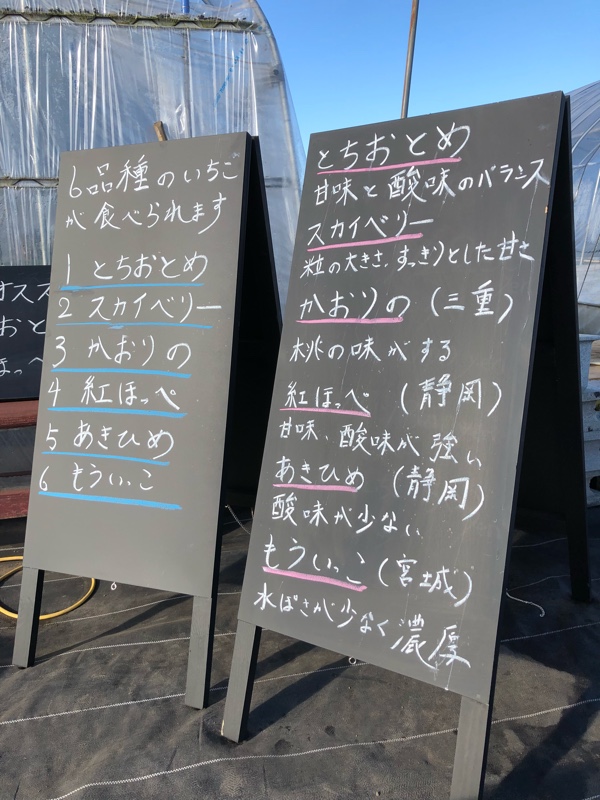 6品種のいちご
が食べられます
1 とちおとめ
2 スカイベリー
3 かおりの
4 紅ほっぺ
5 あきひめ
6 もういっこ
とちおとめ
甘味と酸味のバランス
スカイベリー
粒の大きさ、すっきりとした甘さ
かおりの (三重)
桃の味がする
紅ほっぺ (静岡)
甘味、酸味が強い
あきひめ (静岡)
酸味が少ない
もういっこ (宮城)
水ぽさが少なく濃厚
オスス
おと
ほっぺ